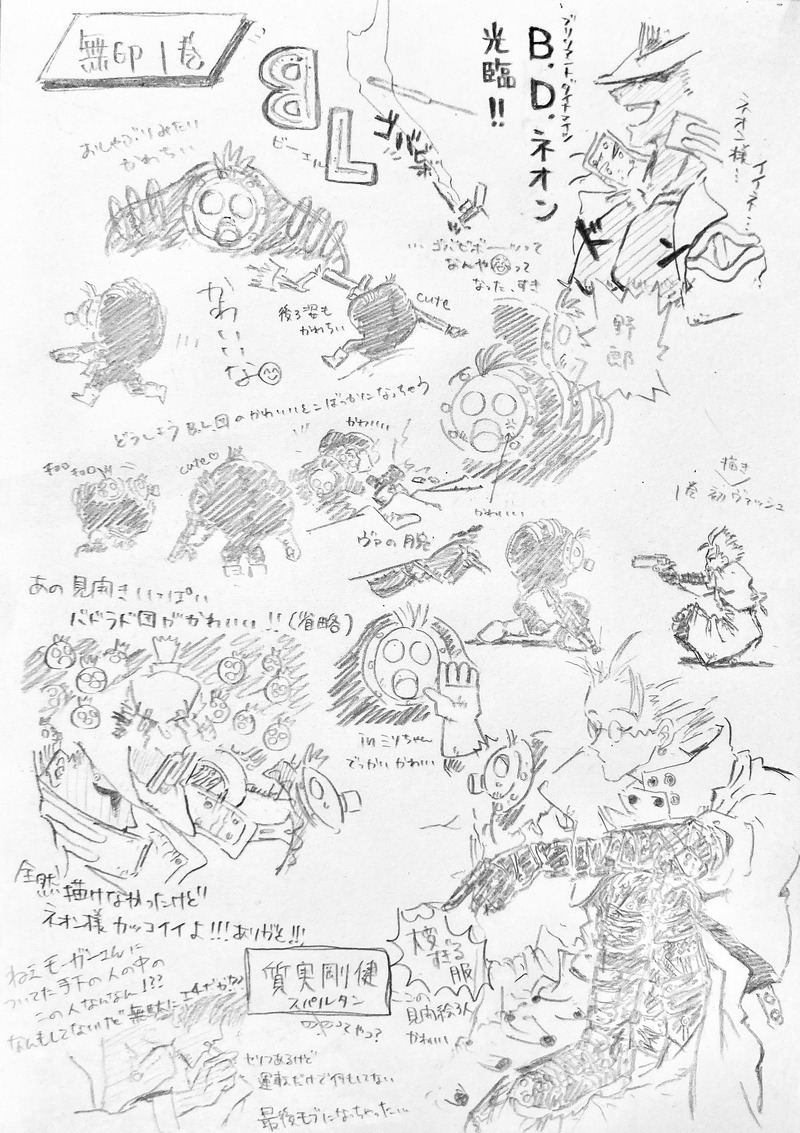 無印1巻
BL
ビーエル
ゴバビボ
ブリリアントダイナマイツ
B.D.ネオン
光臨!!
ネオン様…
イイネ…
ドン
野郎
おしゃぶりみたい
かわちぃ
…ゴバビボーーッって
なんや㊙って
なった、すき
かわいいな
後ろ姿も
かわちい
cute
どうしよう B.L.団のかわいいとこばっかになっちゃう
かわいい
cute♡
かわいい
ヴァの腕
描き
1巻初ヴァッシュ
あの見開きいっぱい
バドラド団がかわいい!!(省略)
in ミリちゃん
でっかいかわいい
全然描けなかったけど
ネオン様カッコイイよ!!!ありがと!!!
ねえモーガンさんに
ついてた手下の人の中の
この人なんなん!??
なんもしてないけど無駄に
質実剛健
スパルタン
ってやつ?
すぎる
服
この
見開き絵3人
かわいい
セリフあるけど
運転だけで何もしてない
最後モブになっちゃった…